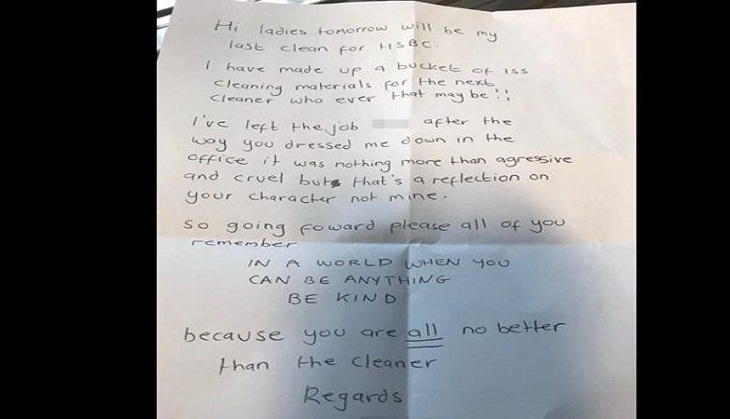 Hi ladies tomorrow will be my
last clean for HSBC.
I have made up a bucket of ISS
cleaning materials for the next
cleaner who ever that may be!!
I've left the job after the
way you dressed me down in the
office it was nothing more than agressive
and cruel but that's a reflection on
your character not mine.
So going foward please all of you
remember
IN A WORLD WHEN YOU
CAN BE ANYTHING
BE KIND
because you are all no better
than the cleaner
Regards